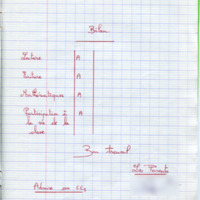 Bilan
Lecture A
Ecriture A
Mathématiques A
Participation à
la vie de la A
classe
Bon travail
Admise au CE2